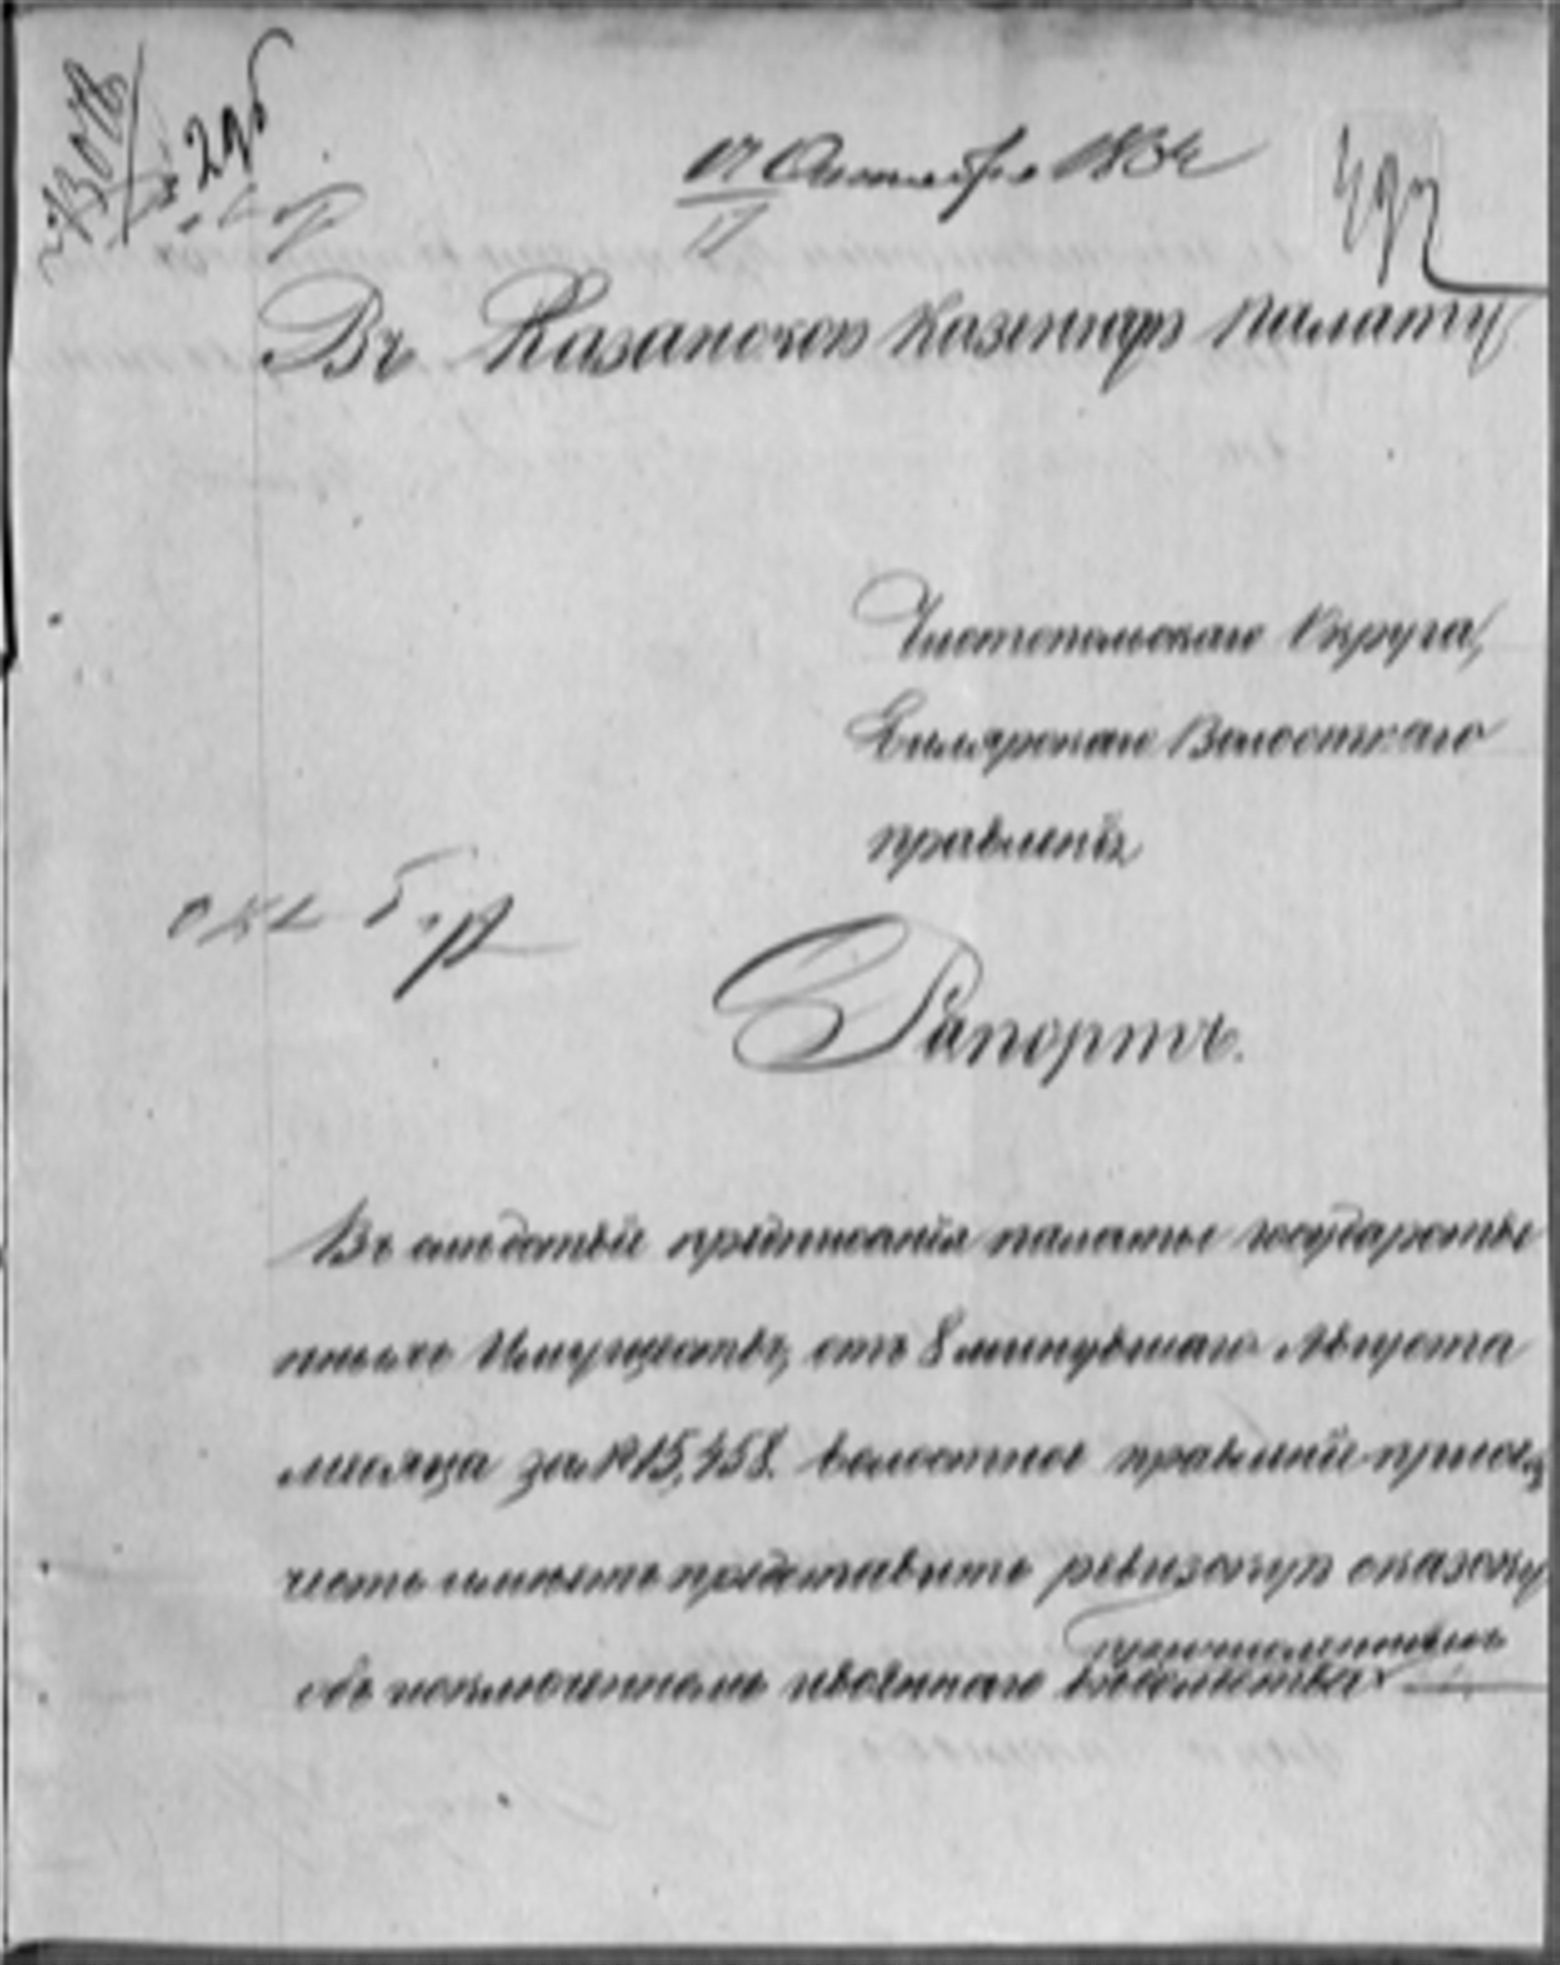 296
17 Октября 185
492
Въ Казанскою Казенную Палату
Чистопольскаго Округа,
Билярскаго Волостнаго
правленія
Рапортъ.
Въ следствіе предписанія палаты государстве
нныхъ Имуществъ, отъ 8 минувшаго Августа
месяца за № 15,458. волостное правленіе при семъ
честь имѣетъ представить ревизскую сказку
объ исключенномъ
ведомства